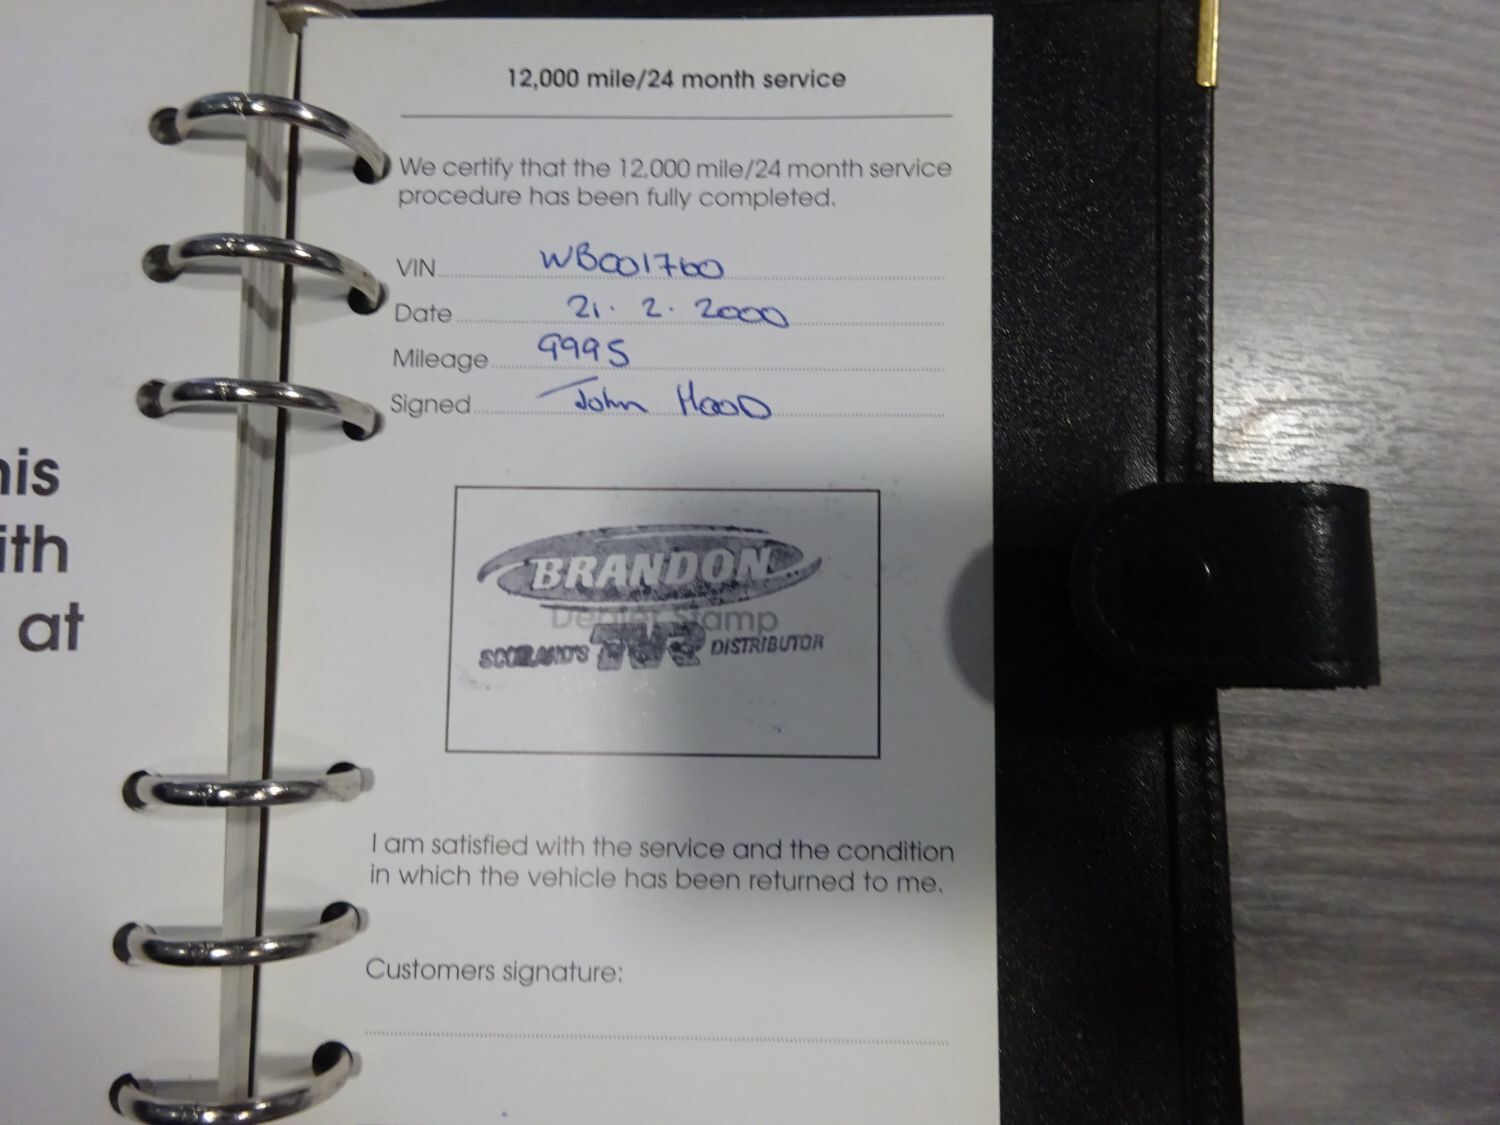 his
ith
at
12,000 mile/24 month service
We certify that the 12,000 mile/24 month service
procedure has been fully completed.
VIN WB001760
Date 21. 2. 2000
Mileage 9995
Signed John Hood
BRANDON
Dealer Stamp
SCOTLAND'S TVR DISTRIBUTOR
I am satisfied with the service and the condition
in which the vehicle has been returned to me.
Customers signature: